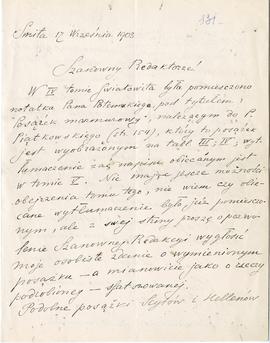 131.
Smiła 17 Września 1903
Szanowny Redaktorze!
W IV tomie Światowita była pomieszczona
notatka Pana Potemskiego, pod tytułem:
"Posążek marmurowy", należącym do P.
Piątkowskiego (str. 154), który to posążek
jest wyobrażonym na tabl. III; IV; wy-
tłumaczenie zaś napisu obiecanem jest
w tomie V. Nie mając jeszcze możności
obejrzenia tomu tego, nie wiem czy obie-
cane wytłumaczenie było już pomieszczo-
nem, ale z swej strony proszę o pozwo-
lenie Szanownej Redakcyi wygłosić
moje osobiste zdanie o wymienionym
posążku — a mianowicie jako o rzeczy
podrobionej — sfałszowanej.
Podobne posążki Scytów i Hellenów